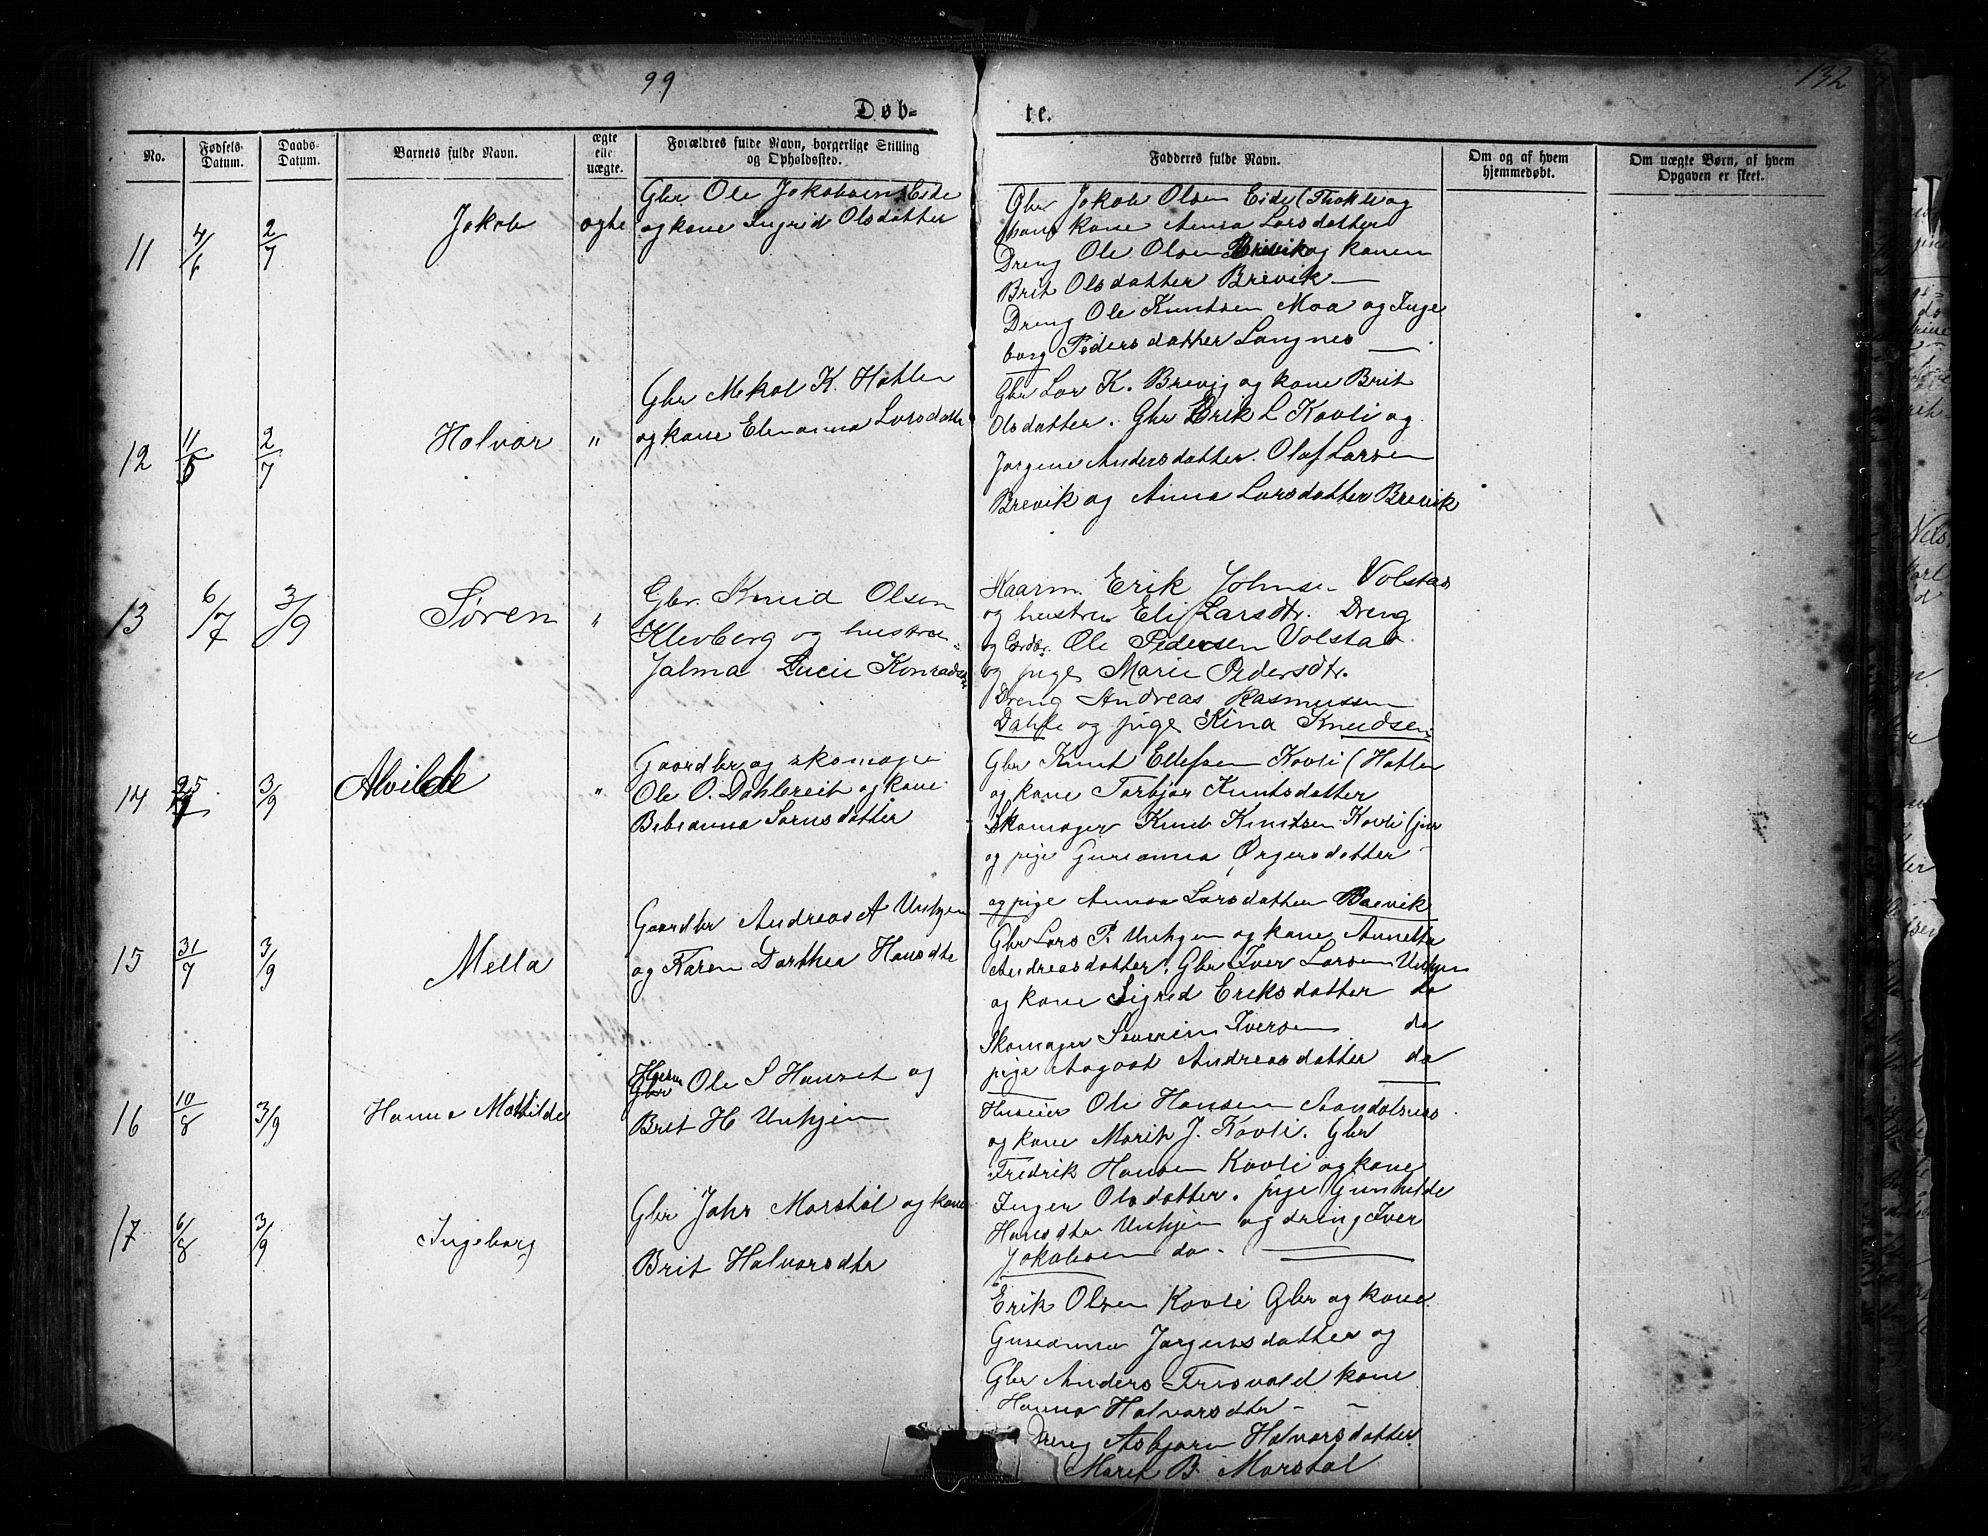 99
132
Døb-
te.
No.
Fødsels-
Datum.
Daabs-
Datum.
Barnets fulde Navn.
ægte
elle
uægte.
Forældres fulde Navn, borgerlige Stilling
og Opholdssted.
Fadderes fulde Navn.
Om og af hvem
hjemmedøbt.
Om uægte Børn, af hvem
Opgaven er skeet.
11
4/6
2/7
Jakob
ægte
Gbr Ole Jakobsen Eide
og kone Ingrid Olsdatter
Gbr Jakob Olsen Eide (Thokle og
hans kone Anna Larsdatter
Dreng Ole Olsen Brevik og konen
Brit Olsdatter Brevik —
Dreng Ole Knutsen Moa og Inge
borg Pedersdatter Langnes —
12
11/5
2/7
Halvar
"
Gbr Mekal K. Hatlen
og kone Elenanna Larsdatter
Gbr Lar K. Brevig og kone Brit
Olsdatter. Gbr Erik L Kavli og
Jørgine Andersdatter. Olaf Larsen
Brevik og Anna Larsdatter Brevik
13
6/7
3/9
Søren
"
Gbr. Knud Olsen
Klevberg og hustru
Jalma Lucie Konrads
Kaarm. Erik Johnsen Volstad
og hustru Eli Larsdtr. Dreng
og Ole Pedersen Volstad
og pige Marie Pedersdtr.
Dreng Andreas Rasmussen
Dahle og pige Kina Knudsen
14
25/7
3/9
Alvilde
"
Gaardbr og skomager
Ole O. Dahlsreit og kone
Bibianna Sørnsdatter
Gbr Knut Ellefsen Kavli (Hatlen
og kone Torbjør Knutsdatter
Skomager Knut Knutsen Kavli (jnr
og pige Gurianna Ørgersdatter
og pige Anna Larsdatter Brevik
15
31/7
3/9
Mella
Gaardbr Andreas A Unhjem
og Karen Dorthea Hansdtr
Gbr Lars P. Unhjem og kone Annetta
Andreasdatter. Gbr Iver Larsen Unhjem
og kone Sigrid Eriksdatter do
Skomager Severin Iversen do
pige Aagoat Andreasdatter do
16
10/8
3/9
Hanna Mathilde
Husm
Gbr Ole S Hanset og
Brit H Unhjem
Huseier Ole Hansen Aandalsnes
og kone Marit J. Kavli. Gbr
Fredrik Hansen Kavli og kone
Inger Olsdatter. pige Gunhilde
Hansdtr Unhjem og dreng Iver
Jakobsen do. —
17
6/8
3/9
Ingeborg
Gbr Jahr Marstøl og kone
Brit Halvarsdtr
Erik Olsen Kavli Gbr og kone
Gurianna Jørgensdatter og
Gbr Anders Frisvold kone
Hanna Halvarsdtr - -
Dreng Asbjørn Halvarsdatter
Marit B. Marstøl